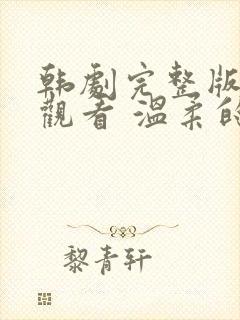 韩劇完整版
觀看 溫柔的
黎青轩